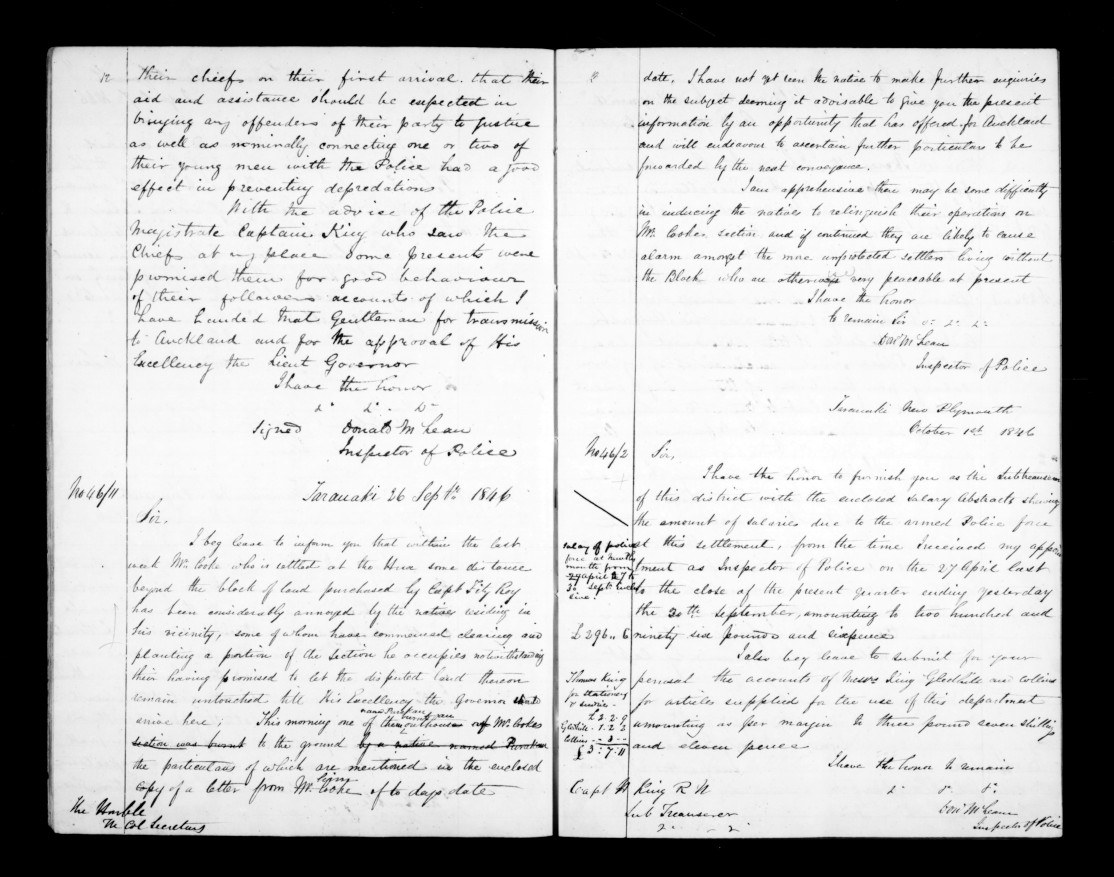 12
their chiefs on their first arrival that their
aid and assistance should be expected in
bringing any offenders of their party to justice
as well as nominally connecting one or two of
their young men with the Police had a good
effect in preventing depredations
With the advice of the Police
Magistrate Captain King who saw the
Chiefs at my place some presents were
promised them for good behaviour
of their followers accounts of which I
have handed that Gentleman for transmission
to Auckland and for the approval of His
Excellency the Lieut Governor
I have the honor
&c &c &c
Signed Donald McLean
Inspector of Police
No 46/11
Taranaki 26 Septr 1846
Sir,
I beg leave to inform you that within the last
week Mr Cooke who is settled at the Hua some distance
beyond the block of land purchased by Capt Fitz Roy
has been considerably annoyed by the natives residing in
his vicinity, some of whom have commenced clearing and
planting a portion of the section he occupies notwithstanding
their having promised to let the disputed land thereon
remain untouched till His Excellency the Governor should
arrive here; This morning one of them
burnt an outhouse of Mr Cookes
section was burnt to the ground by a native named
the particulars of which are mentioned in the enclosed
copy of a letter from Mr Cooke of to days date
The Honble
The Col Secretary
2
date. I have not yet seen the native to make further enquiries
on the subject deeming it advisable to give you the present
information by an opportunity that has offered for Auckland
and will endeavour to ascertain further particulars to be
forwarded by the next conveyance.
I am apprehensive there may be some difficulty
in inducing the natives to relinquish their operations on
Mr. Cookes section and if continued they are likely to cause
alarm amongst the more unprotected settlers living without
the Block who are otherwise very peaceable at present
I have the honor
to remain Sir &c &c &c
Don McLean
Inspector of Police
Taranaki New Plymouth
October 1st 1846
No 46/2
Sir,
I have the honor to furnish you as the Subtreasurer
of this district with the enclosed Salary Abstracts shewing
the amount of salaries due to the armed Police force
at this settlement, from the time I received my appoin
tment as Inspector of Police on the 27 April last
to the close of the present quarter ending yesterday
the 30th September, amounting to two hundred and
ninety six pounds and sixpence
Salary of police
force
months from
27 april to
30 Septr inclu
sive.
£296 " 6
I also beg leave to submit for your
perusal the accounts of Messrs King Gledhill and Collins
for articles supplied for the use of this department
amounting as per margin to three pound seven shillings
and eleven pence
Thomas King
for stationery
& sundries -
£2.2.9
Gledhill - 1.2.2
Collins - - 3 - -
£3:7.11
I have the honor to remain
&c &c &c
Don McLean
Inspector of Police
Capt H King R N
Sub Treasurer